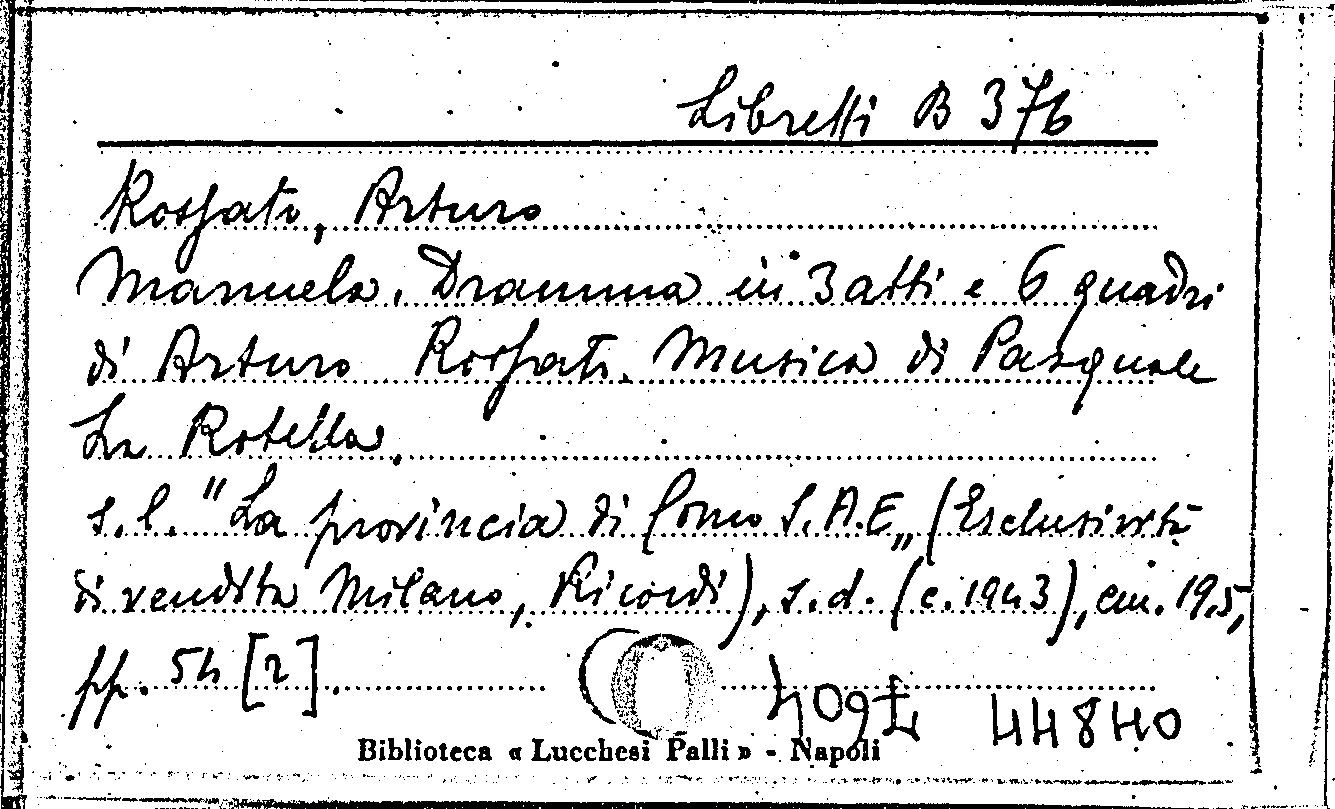 Libretti B 376
Rossato, Arturo
Manuela. Dramma in 3 atti e 6 quadri
di Arturo Rossato. Musica di Pasquale
La Rotella.
s.l. "La provincia di Como S.A.E„ (Esclusività
di vendita Milano, Ricordi), s.d. (c. 1943), cm. 19,5,
pp. 54 [2].
44840
Biblioteca « Lucchesi Palli » - Napoli